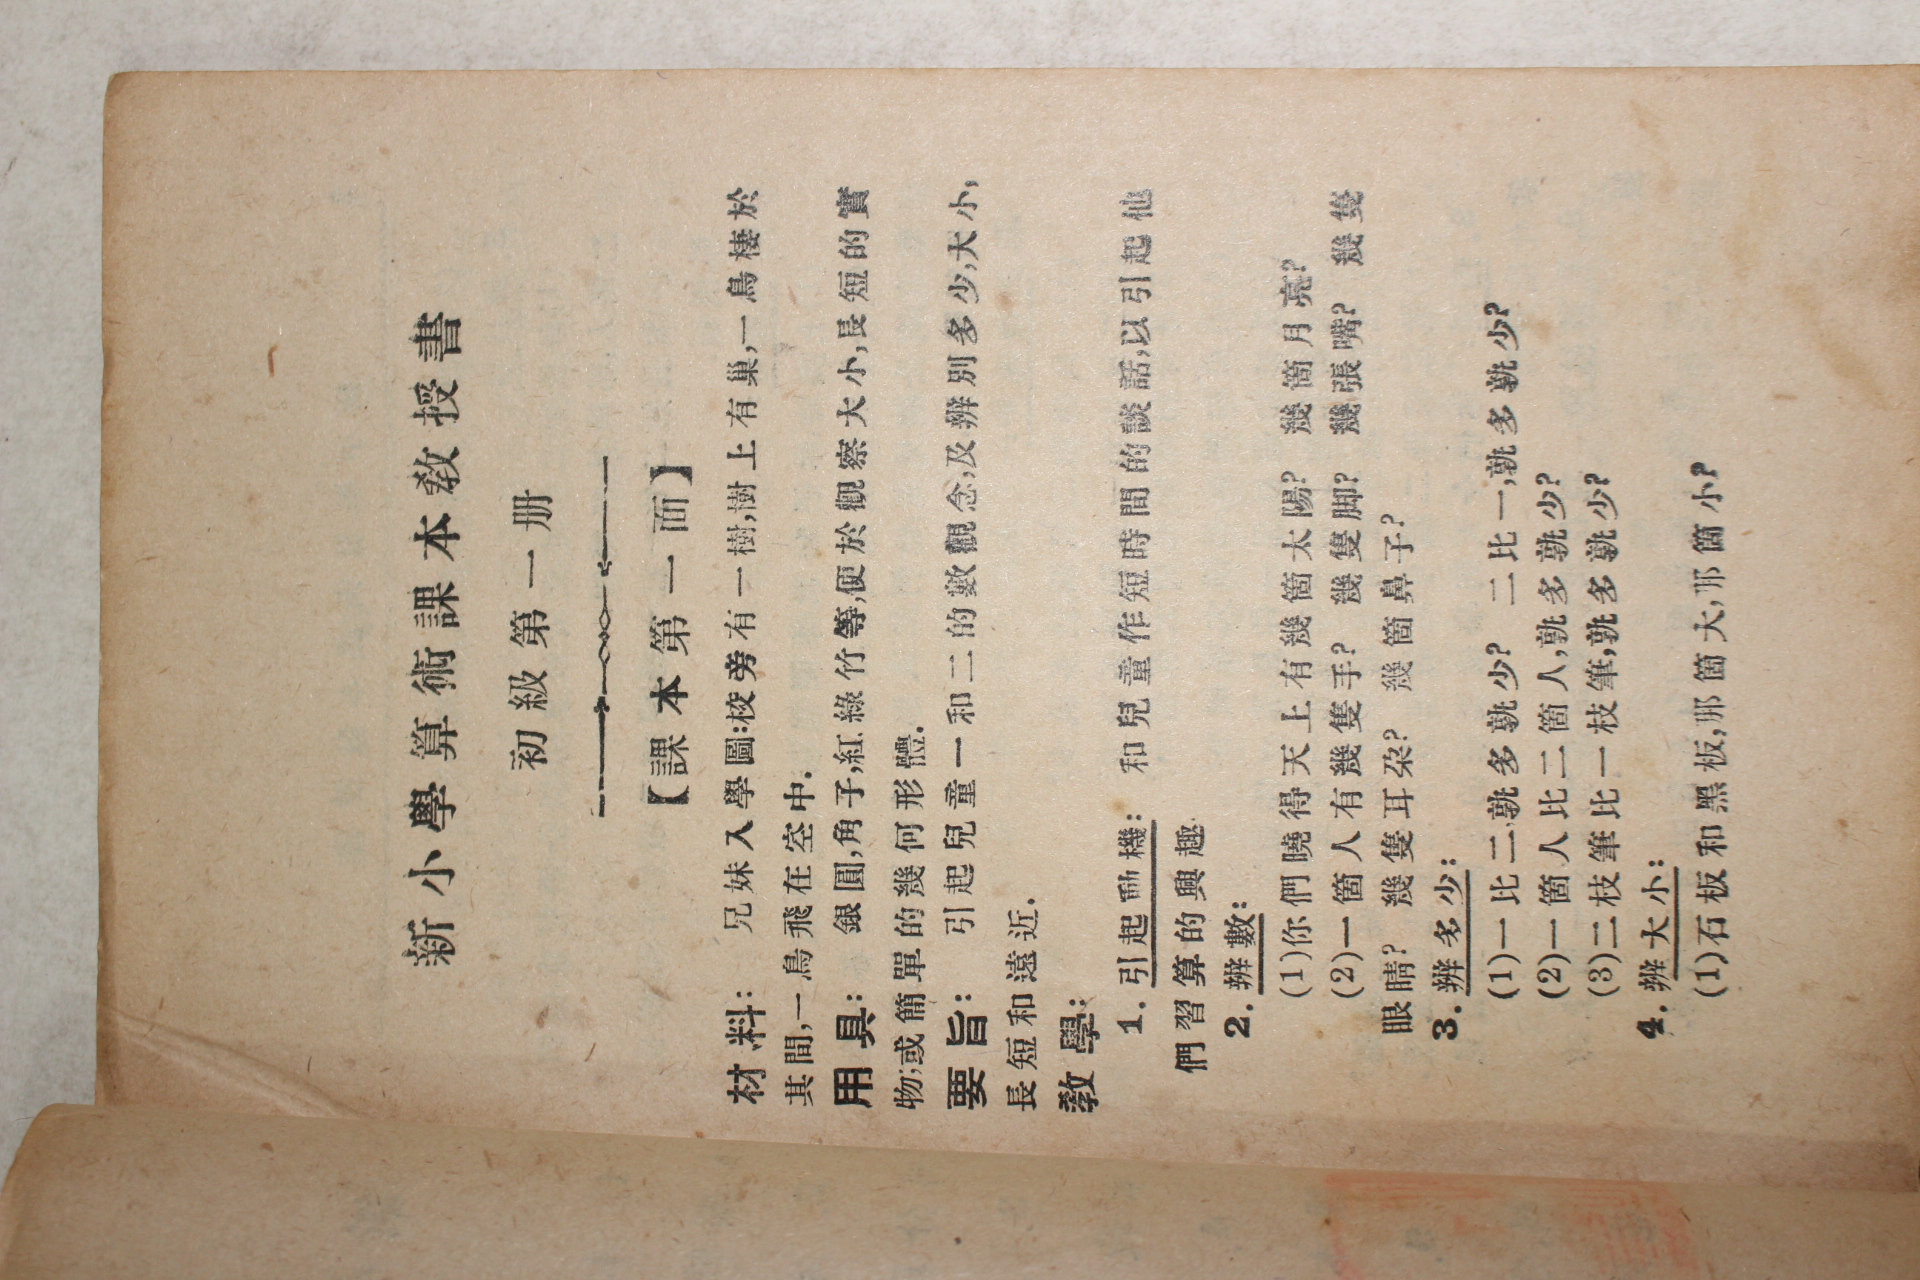 新小學算術課本教授書
初級第一册
【課本第一面】
材料： 兄妹入學圖：校旁有一樹，樹上有巢，一鳥棲於
其間，一鳥飛在空中．
用具： 銀圓，角子，紅綠竹等，便於觀察大小，長短的實
物；或簡單的幾何形體．
要旨： 引起兒童一和二的數觀念，及辨別多少，大小，
長短和遠近．
教學：
1．引起動機： 和兒童作短時間的談話，以引起他
們習算的興趣．
2．辨數：
(1)你們曉得天上有幾箇太陽？ 幾箇月亮？
(2)一箇人有幾隻手？ 幾隻脚？ 幾張嘴？ 幾隻
眼睛？ 幾隻耳朶？ 幾箇鼻子？
3．辨多少：
(1)一比二，孰多孰少？ 二比一，孰多孰少？
(2)一箇人比二箇人，孰多孰少？
(3)二枝筆比一枝筆，孰多孰少？
4．辨大小：
(1)石板和黑板，那箇大，那箇小？